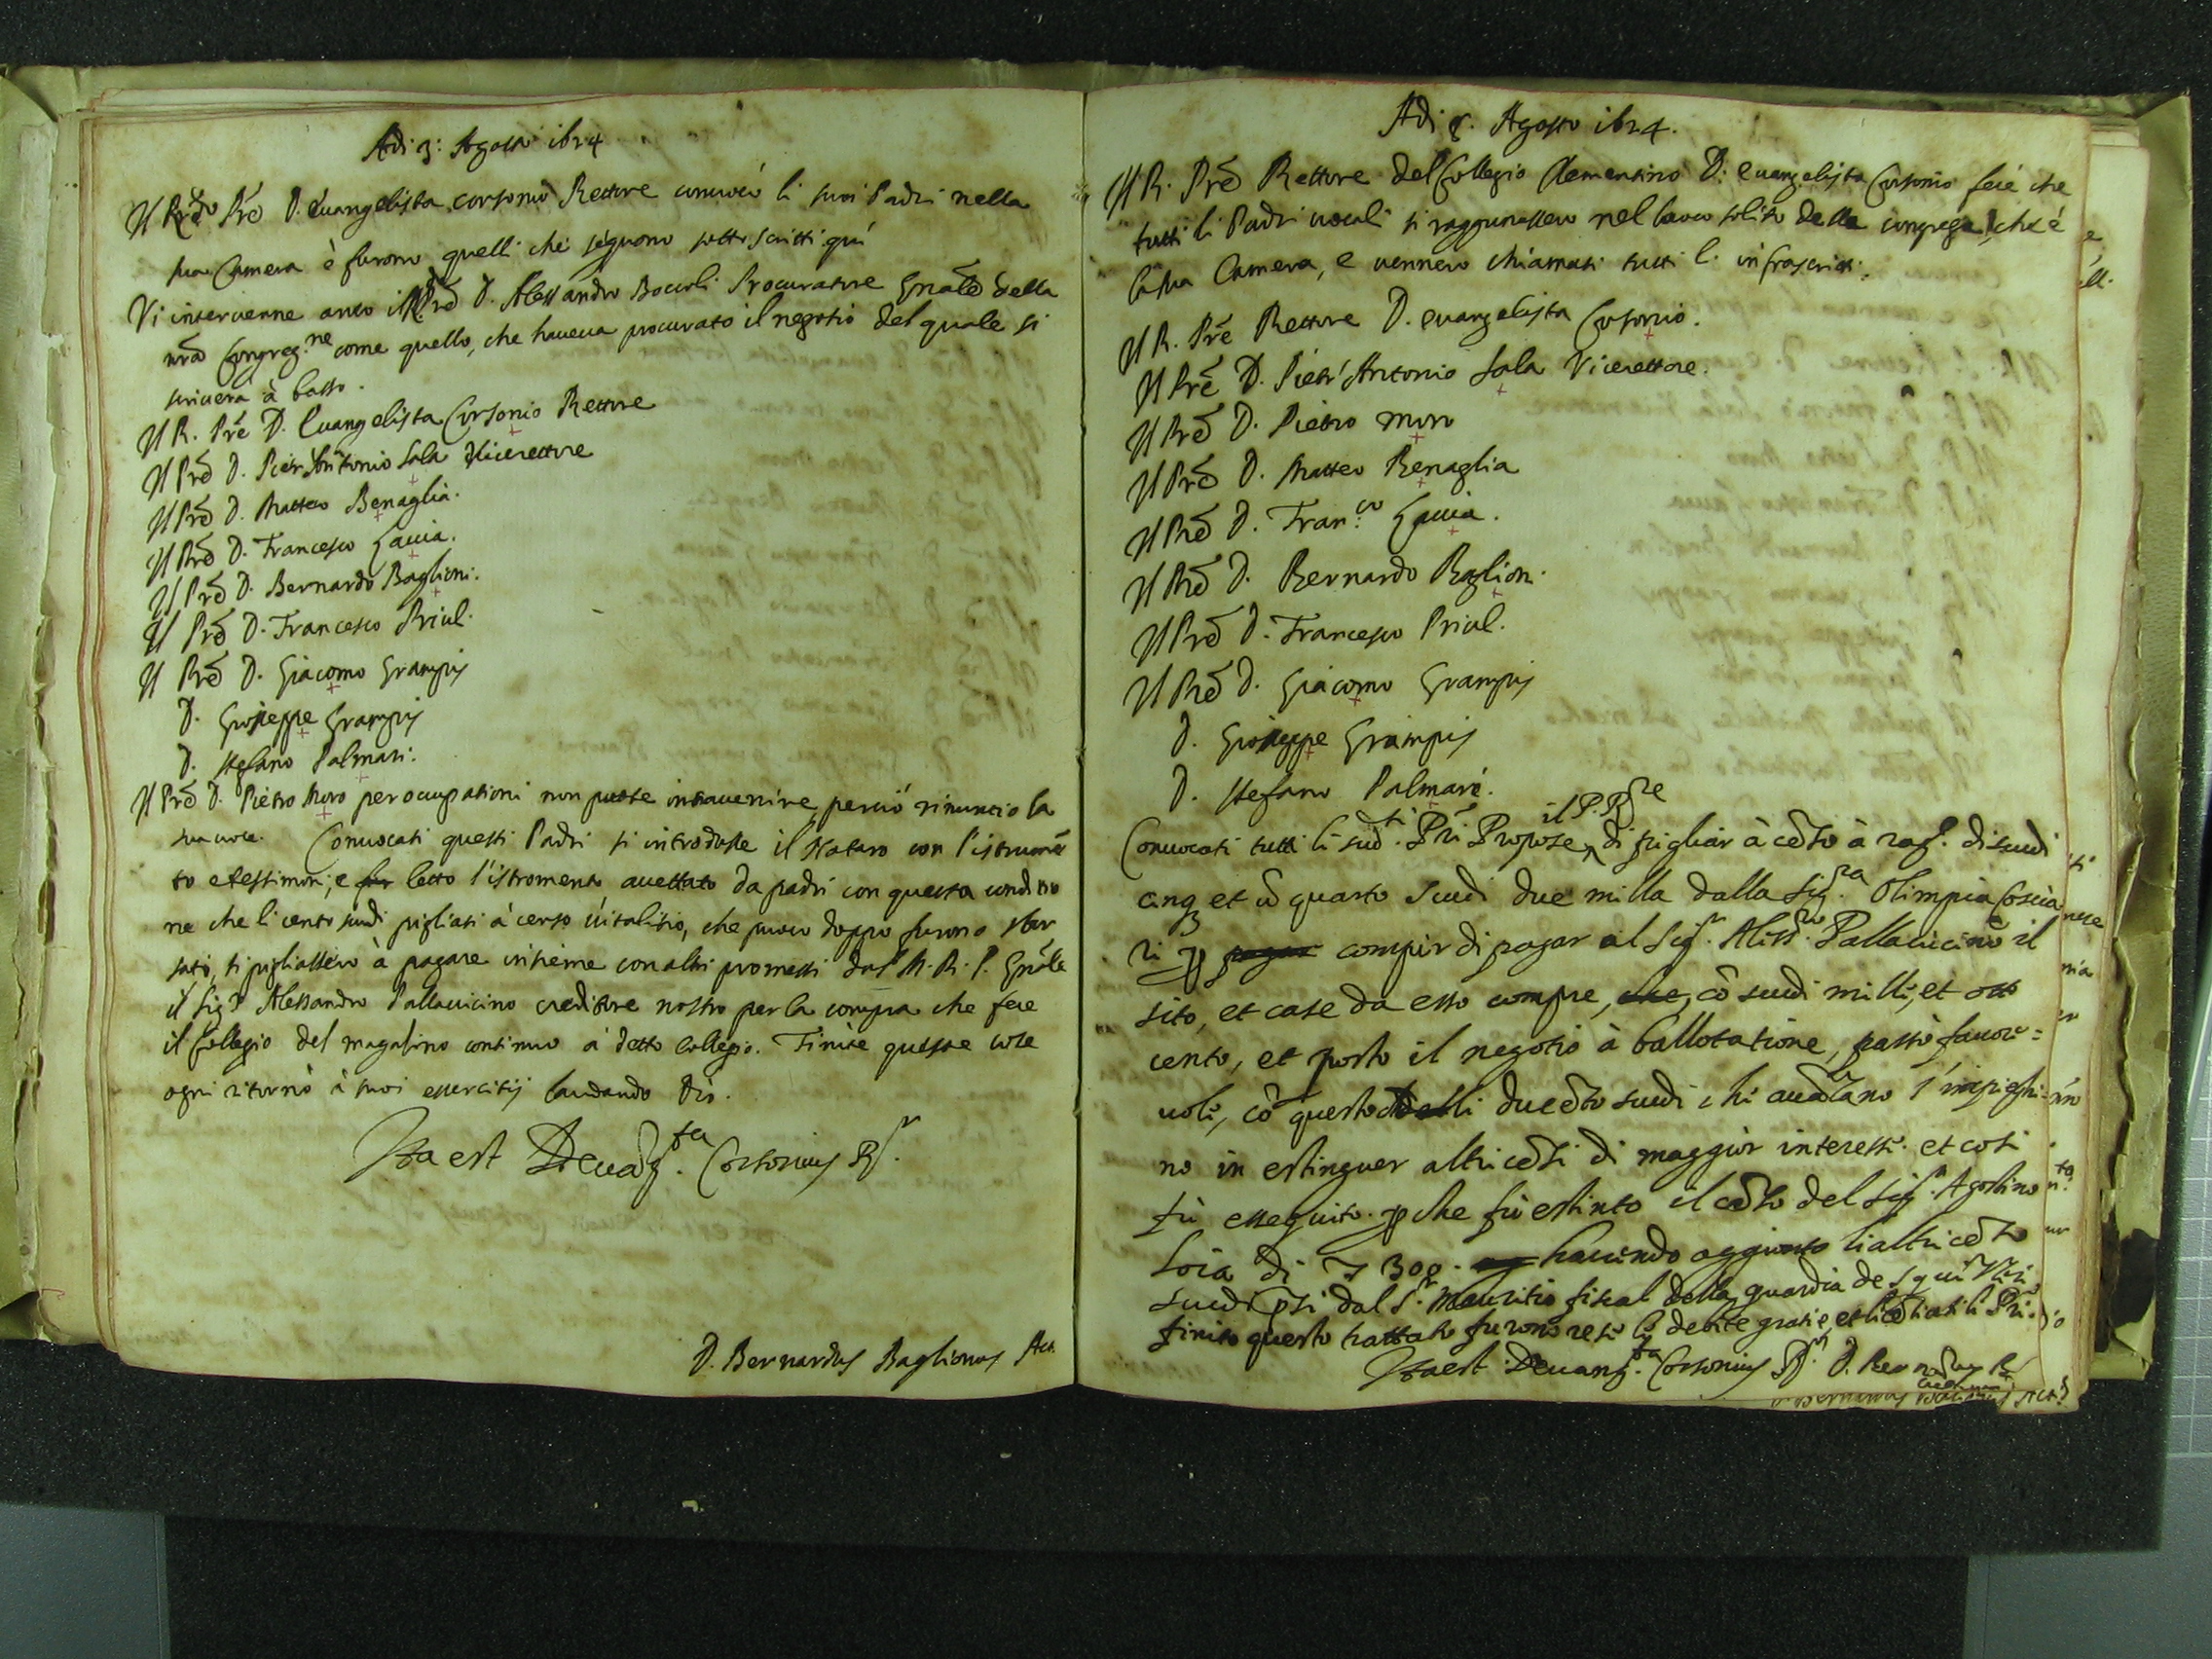 Adi 3: Agosto i624
Il R.do Prē D. Euangelista corsonio Rettore conuocò li suoi Padri nella
sua Camera è furono quelli che séguono sotto scritti quí
Vi interuenne anco il R. Prē D. Alessandro Boccoli Procuratore Gnāle della
nrā Congreg.ne come quello, che haueua procurato il negotio del quale si
scriuerà à basso.
Il R. Prē D. Euangelista Corsonio Rettore
Il Prē D. Pietr'Antonio Sala Vicerettore
Il Prē D. Matteo Benaglia.
Il Prē D. Francesco Gauia.
Il Prē D. Bernardo Baglioni.
Il Prē D. Francesco Priul.
Il Prē D. Giacomo Grampis
D. Gioseppe Grampis
D. Stefano Palmari.
Il Prē D. Pietro Moro per occupationi non puote interuenire, perciò rinuncio la
sua uoce. Conuocati questi Padri si introdusse il Notaro con l'istrumē
to e testimonij, e letto l'istromento accettato da padri con questa conditio
ne che li cento scudi pigliati à censo uitalitio, che puoco doppo furono sbor
sati, si pigliassero à pagare insieme con altri promessi dal M. R. P. Gnāle
il Sig.r Alessandro Pallauicino creditore nostro per la compra che fece
il Collegio del magasino continuo à detto Collegio. Finite queste cose
ogni ritornò à suoi essercitij laudando Dio.
Ita est D. Euang.ta Corsonius R.r
D. Bernardus Baglionus Act.
Adi 8. Agosto i624.
Il R. Prē Rettore del Collegio Clementino D. Euangelista Corsonio fece che
tutti li Padri uocali si raggunassero nel luoco solito della congrega, che è
la sua Camera, e uennero chiamati tutti l'infrascritti.
Il R. Prē Rettore D. Euangelista Corsonio.
Il Prē D. Pietr'Antonio Sala Vicerettore.
Il Prē D. Pietro Moro
Il Prē D. Matteo Benaglia
Il Prē D. Fran.co Gauia.
Il Prē D. Bernardo Baglioni.
Il Prē D. Francesco Priul.
Il Prē D. Giacomo Grampis
D. Gioseppe Grampis
D. Stefano Palmari.
Conuocati tutti li sud.ti Prī Propose il P. R.re di pigliar à cēso à rag. di scudi
cinq et ū quarto scudi due milla dalla Sig.ra Olimpia Coscia
ri compir di pagar al Sig.r Aless.ro Pallauicino il
sito, et case da esso compre, cō scudi milli, et otto
cento, et posto il negotio à ballotatione, passò fauore=
uole, cō questo li ducēto scudi chi auāzano s'impieghi=
no in estinguer altri cēsi di maggior interesse. et cosi
fù esseguito. che fù estinto il cēso del Sig.r Agostino
Soia di 300. hauendo aggiunto li altri cēto
scudi dal S.r Mauritio fiscal della guardia de
finito questo trattato furono rese le debite gratie, et licētiati li Prī.
Ita est D. Euang.ta Corsonius R.r D. Bernardus
D. Bernardus Baglionus Act.s